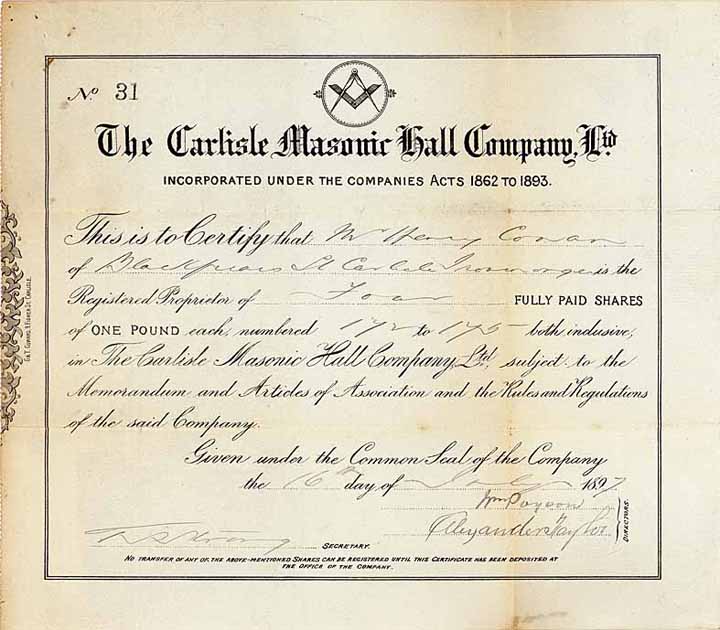 No 31
The Carlisle Masonic Hall Company, Ltd.
INCORPORATED UNDER THE COMPANIES ACTS 1862 TO 1893.
This is to Certify that Mr Henry Cowan
of Blackfriars St Carlisle Ironmonger is the
Registered Proprietor of Four FULLY PAID SHARES
of ONE POUND each, numbered 172 to 175 both inclusive,
in The Carlisle Masonic Hall Company, Ltd, subject to the
Memorandum and Articles of Association and the Rules and Regulations
of the said Company.
Given under the Common Seal of the Company
the 16th day of July 1897
Wm
Alexander Taylor
DIRECTORS.
SECRETARY.
NO TRANSFER OF ANY OF THE ABOVE-MENTIONED SHARES CAN BE REGISTERED UNTIL THIS CERTIFICATE HAS BEEN DEPOSITED AT
THE OFFICE OF THE COMPANY.